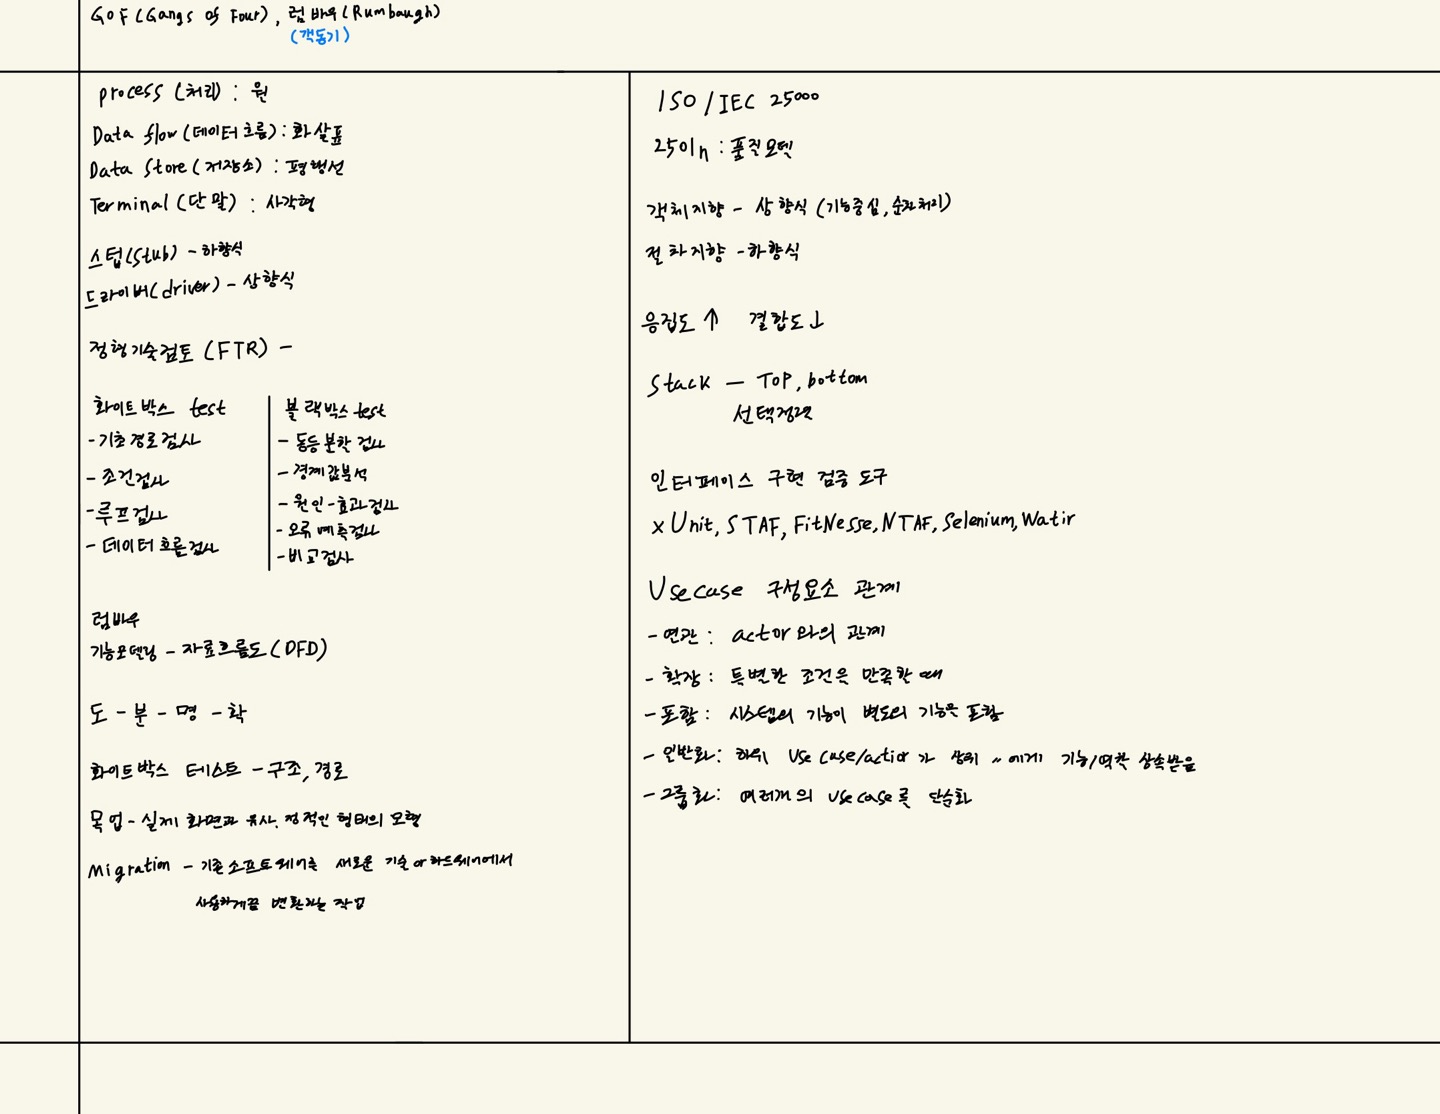 GOF (Gangs of Four), 럼바우(Rumbaugh)
(객동기)
process (처리) : 원
Data flow (데이터 흐름) : 화살표
Data Store (저장소) : 평행선
Terminal (단말) : 사각형
스텁(Stub) - 하향식
드라이버(driver) - 상향식
정형기술검토 (FTR) -
화이트박스 test
- 기초경로검사
- 조건검사
- 루프검사
- 데이터 흐름검사
블랙박스 test
- 동등분할 검사
- 경계값분석
- 원인-효과검사
- 오류예측검사
- 비교검사
럼바우
기능모델링 - 자료흐름도 (DFD)
도 - 분 - 명 - 학
화이트박스 테스트 - 구조, 경로
목업 - 실제 화면과 유사, 정적인 형태의 모형
Migration - 기존 소프트웨어를 새로운 기술 or 하드웨어에서
사용하게끔 변환하는 작업
ISO / IEC 25000
2501n : 품질모델
객체지향 - 상향식 (기능중심, 순차처리)
절차지향 - 하향식
응집도 ↑ 결합도 ↓
Stack — TOP, bottom
선택정렬
인터페이스 구현 검증 도구
xUnit, STAF, FitNesse, NTAF, Selenium, Watir
Usecase 구성요소 관계
- 연관 : actor 와의 관계
- 확장 : 특별한 조건을 만족할 때
- 포함 : 시스템의 기능이 별도의 기능을 포함
- 일반화 : 하위 Use case/actior 가 상위 〃 에게 기능/역할 상속받음
- 그룹화 : 여러개의 use case를 단순화